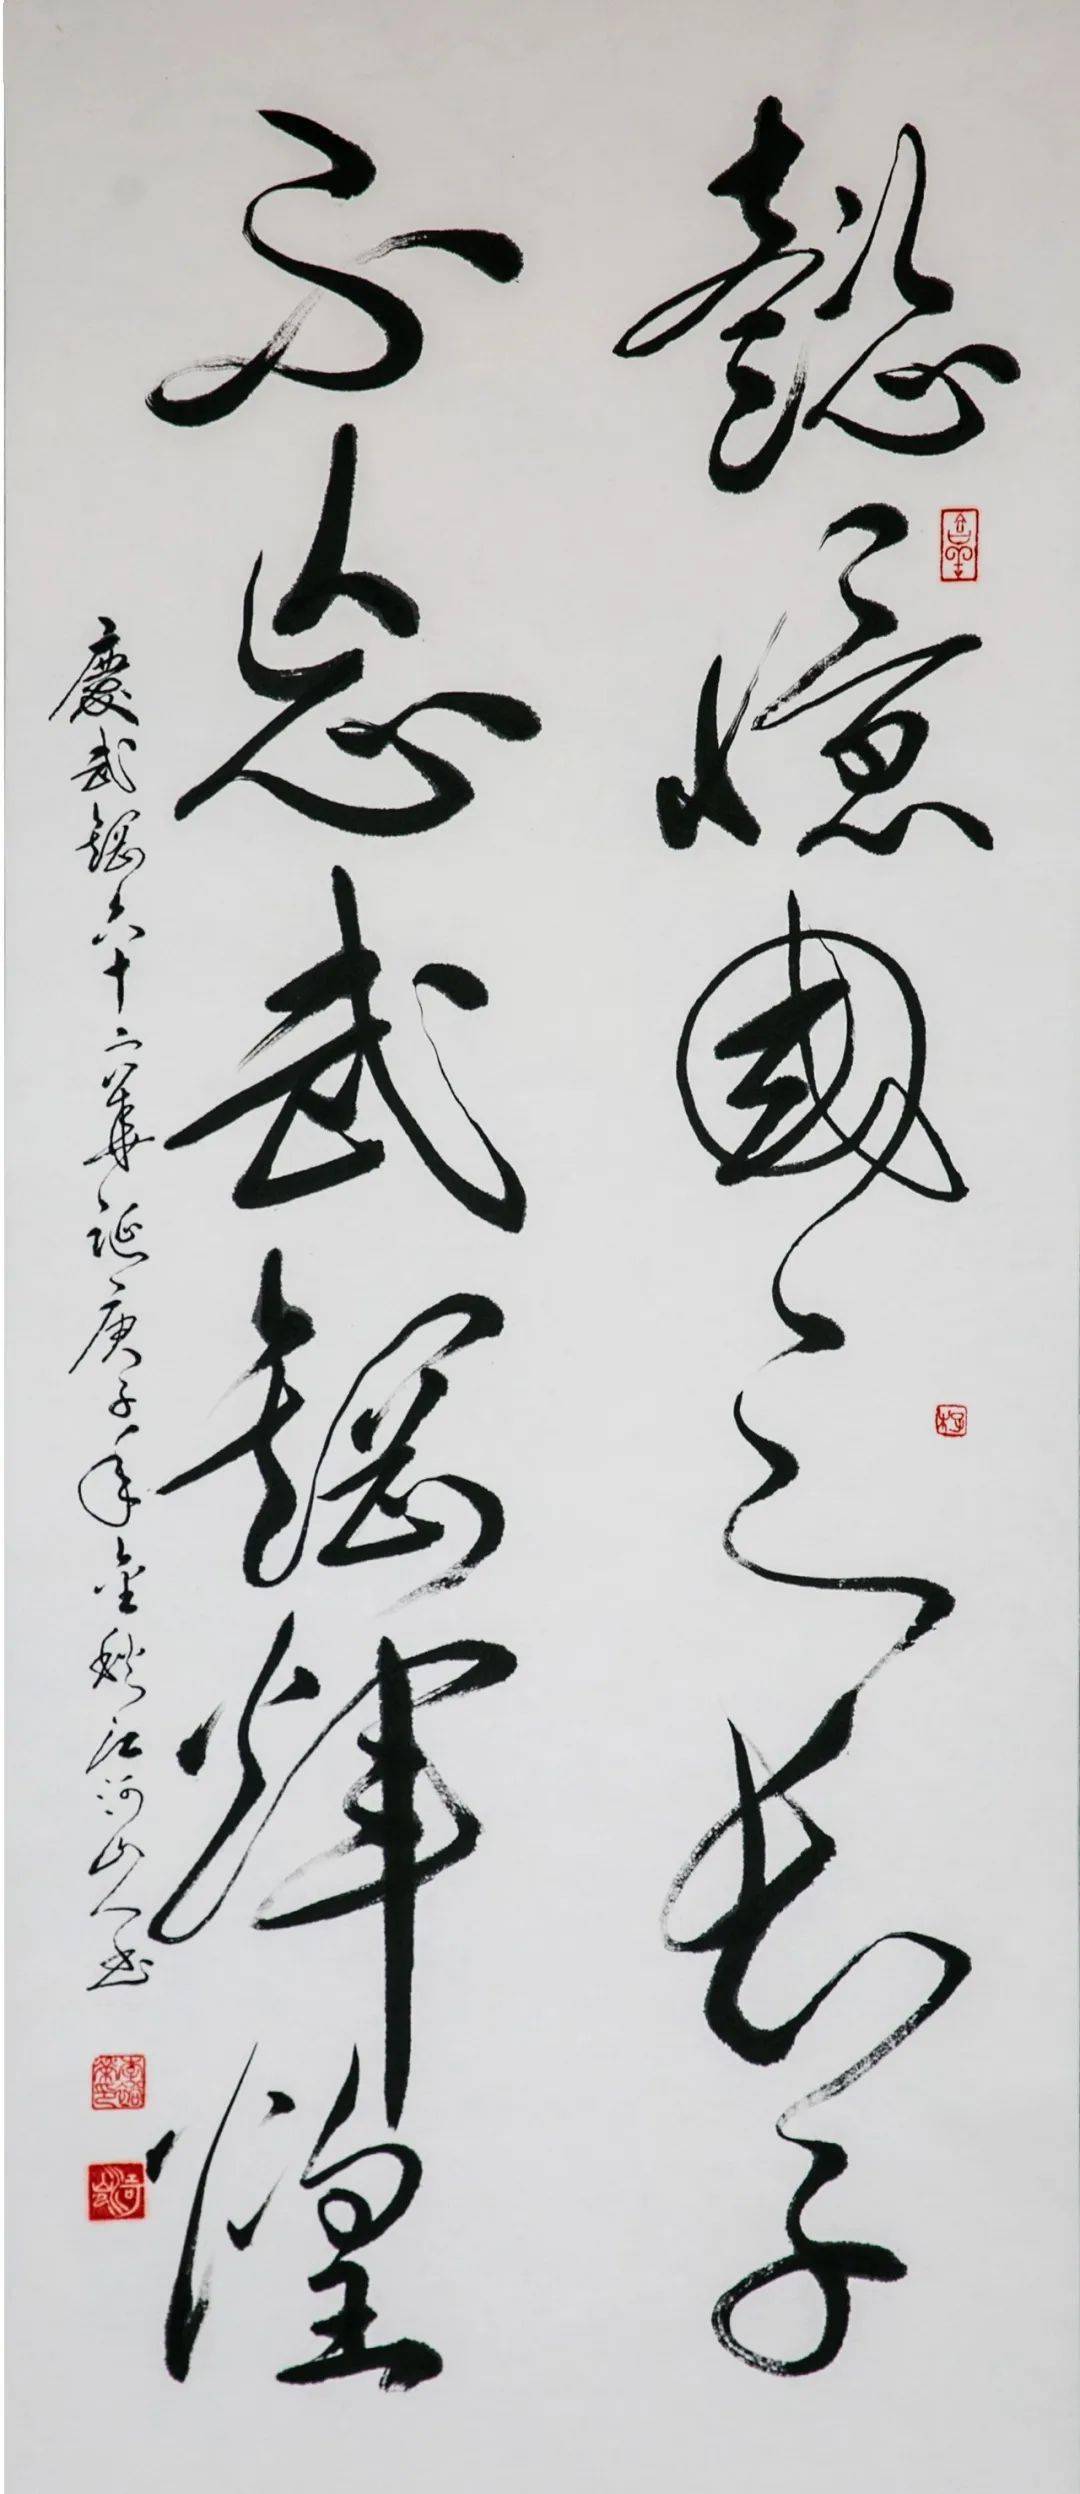 懿憶國之長子
不忘武鋼輝煌
慶武鋼六十二華誕庚子年金秋江河山人書